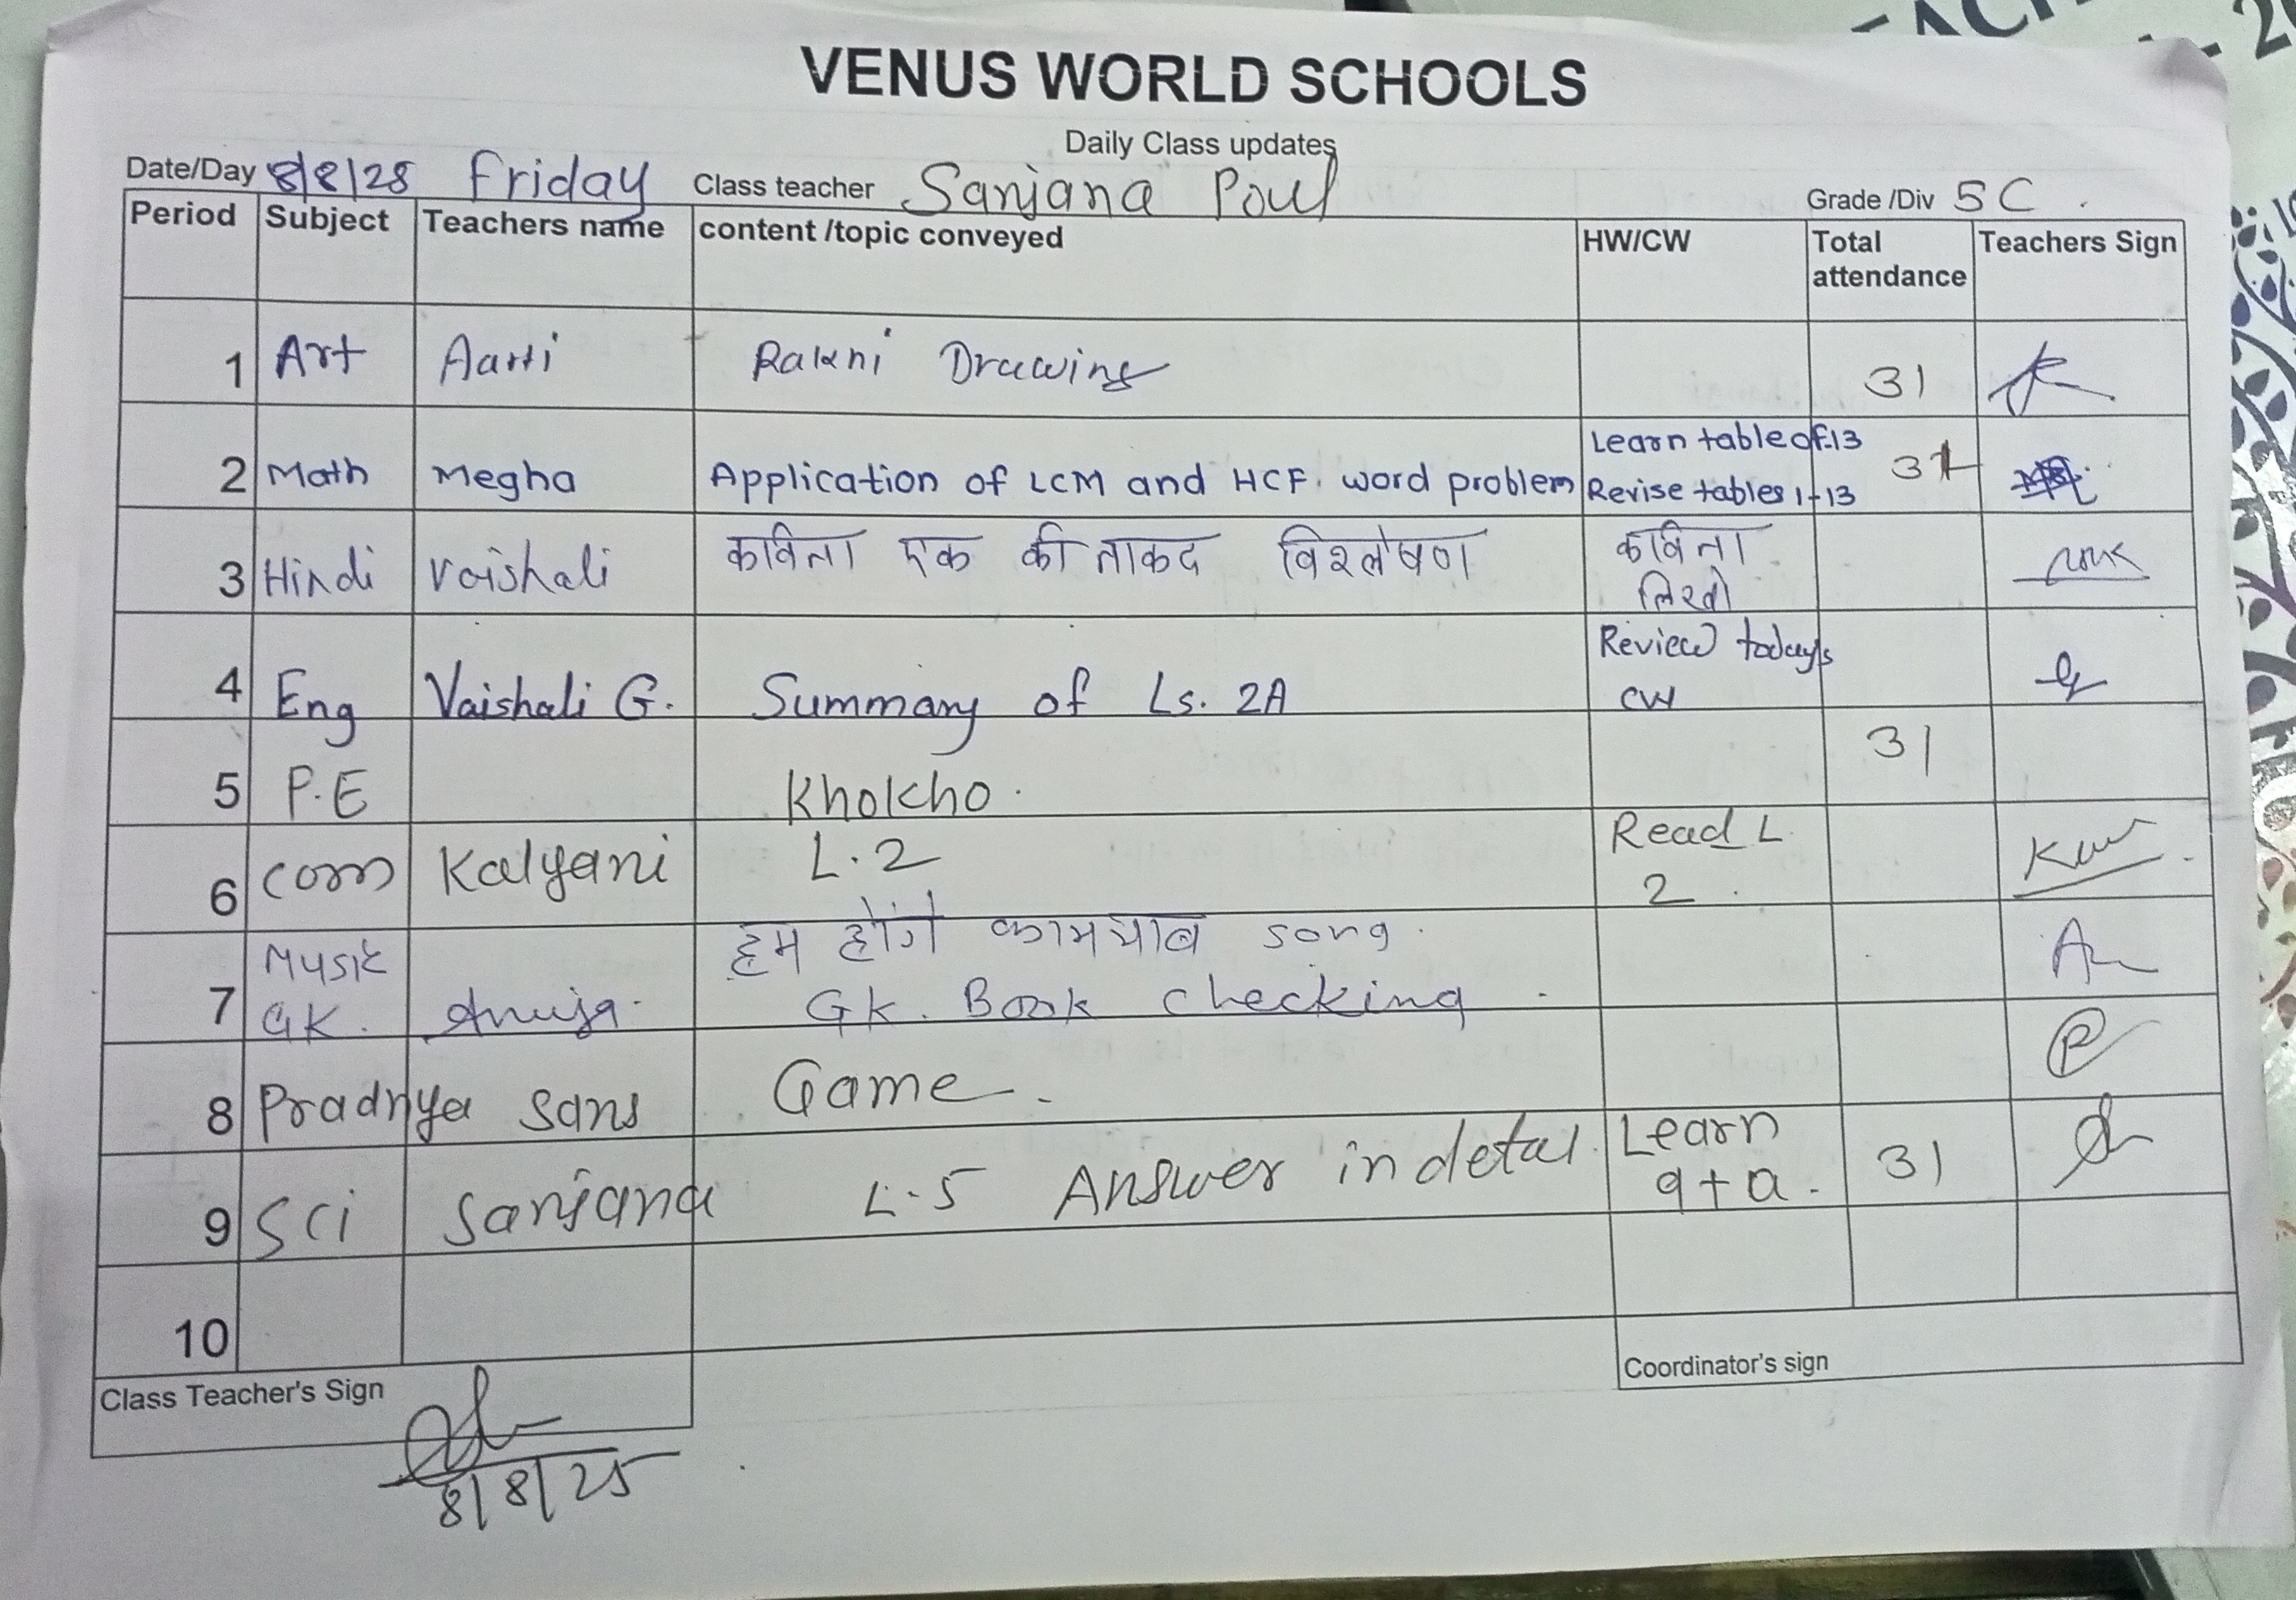 VENUS WORLD SCHOOLS
Daily Class updates
Date/Day 8/8/25 Friday Class teacher Sanjana Poul Grade /Div 5C.
Period Subject Teachers name content /topic conveyed HW/CW Total attendance Teachers Sign
1 Art Aarti Rakhi Drawing 31
2 Math Megha Application of LCM and HCF. word problem Learn table of 13 31
Revise tables 1-13
3 Hindi Vaishali कविता एक की ताकद विश्लेषण कविता
लिखो
4 Eng Vaishali G. Summary of Ls. 2A Review today's
CW
31
5 P.E Khokho.
6 Com Kalyani L.2 Read L
2.
Music हम होंगे कामयाब song.
7 GK. Anuja. GK. Book checking.
8 Pradnya Sans Game.
9 Sci Sanjana L.5 Answer in detal. Learn 31
q+a.
10
Class Teacher's Sign
8/8/25
Coordinator's sign